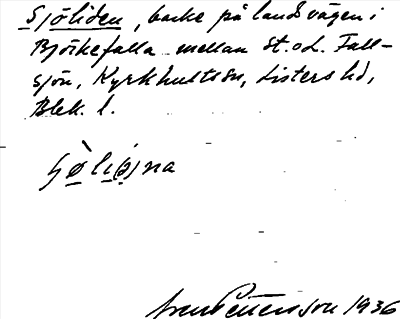 Sjöliden, backe på landsvägen i
Björkefalla mellan St. o L. Fall-
sjön, Kyrkhults sn, Listers hd,
Blek. l.
Pettersson 1936